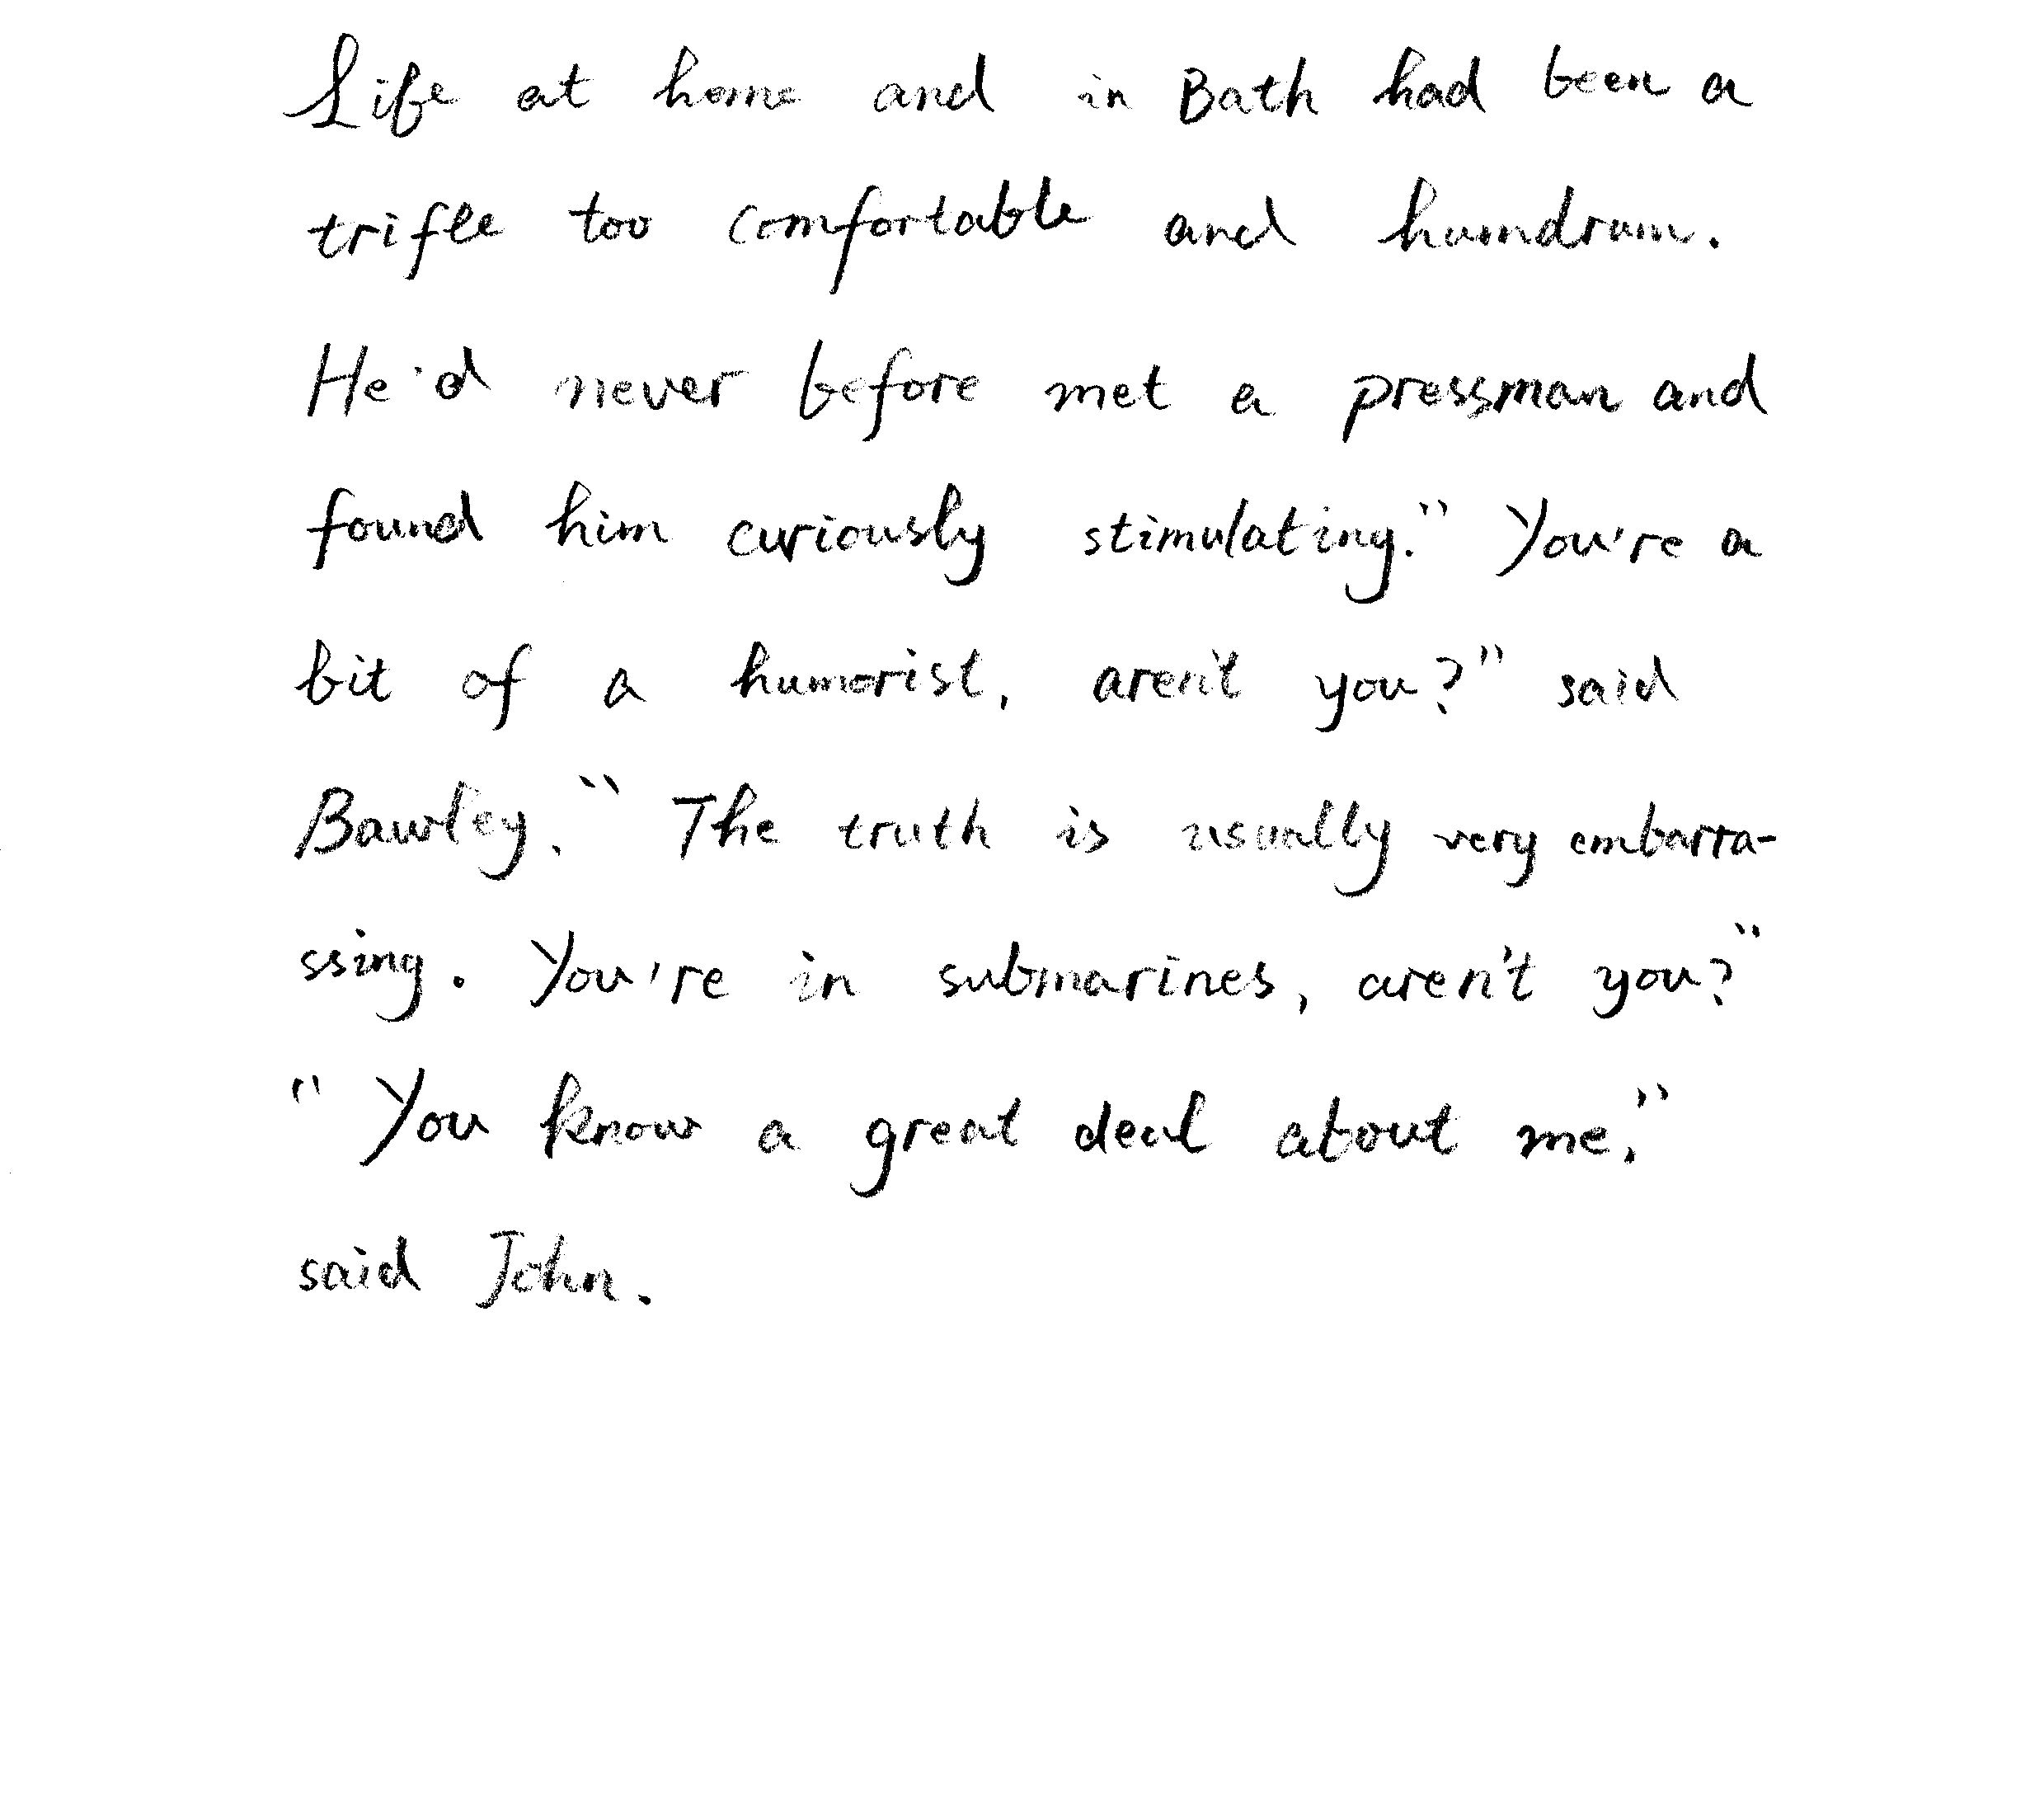 Life at home and in Bath had been a
trifle too comfortable and humdrum.
He'd never before met a pressman and
found him curiously stimulating." You're a
bit of a humorist, aren't you?" said
Bawley." The truth is usually very embarra-
ssing. You're in submarines, aren't you?"
"You know a great deal about me."
said John.